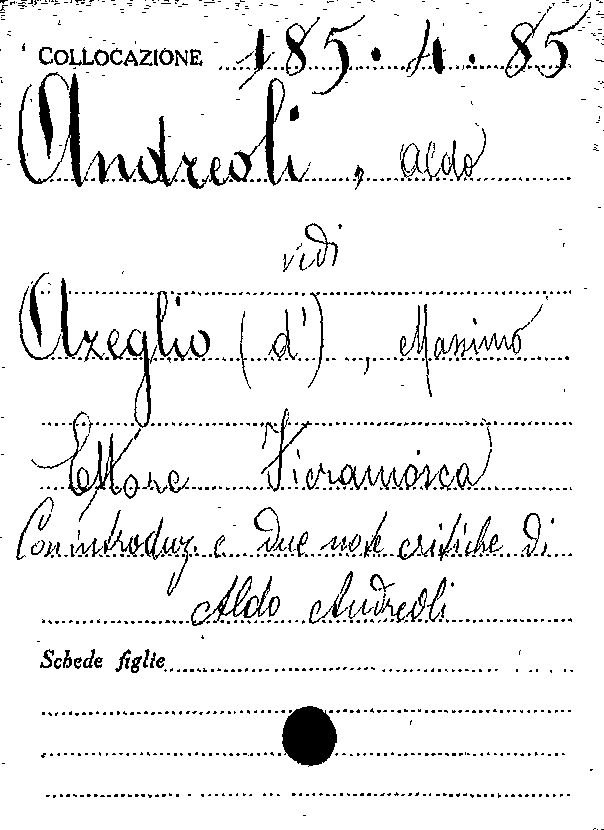 COLLOCAZIONE 185.4.85
Andreoli, Aldo
vidi
Azeglio (d'), Massimo
Ettore Fieramosca
Con introduz. e due note critiche di
Aldo Andreoli
Schede figlie